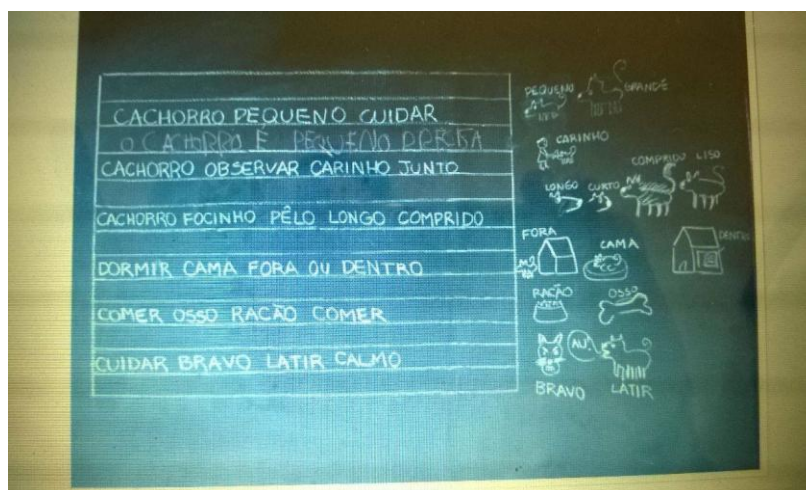 CACHORRO PEQUENO CUIDAR
O CACHORRO É PEQUENO
CACHORRO OBSERVAR CARINHO JUNTO
CACHORRO FOCINHO PÊLO LONGO COMPRIDO
DORMIR CAMA FORA OU DENTRO
COMER OSSO RACÃO COMER
CUIDAR BRAVO LATIR CALMO
PEQUENO GRANDE
CARINHO
COMPRIDO LISO
LONGO CURTO
FORA
CAMA
DENTRO
RACÃO OSSO
AU
BRAVO LATIR